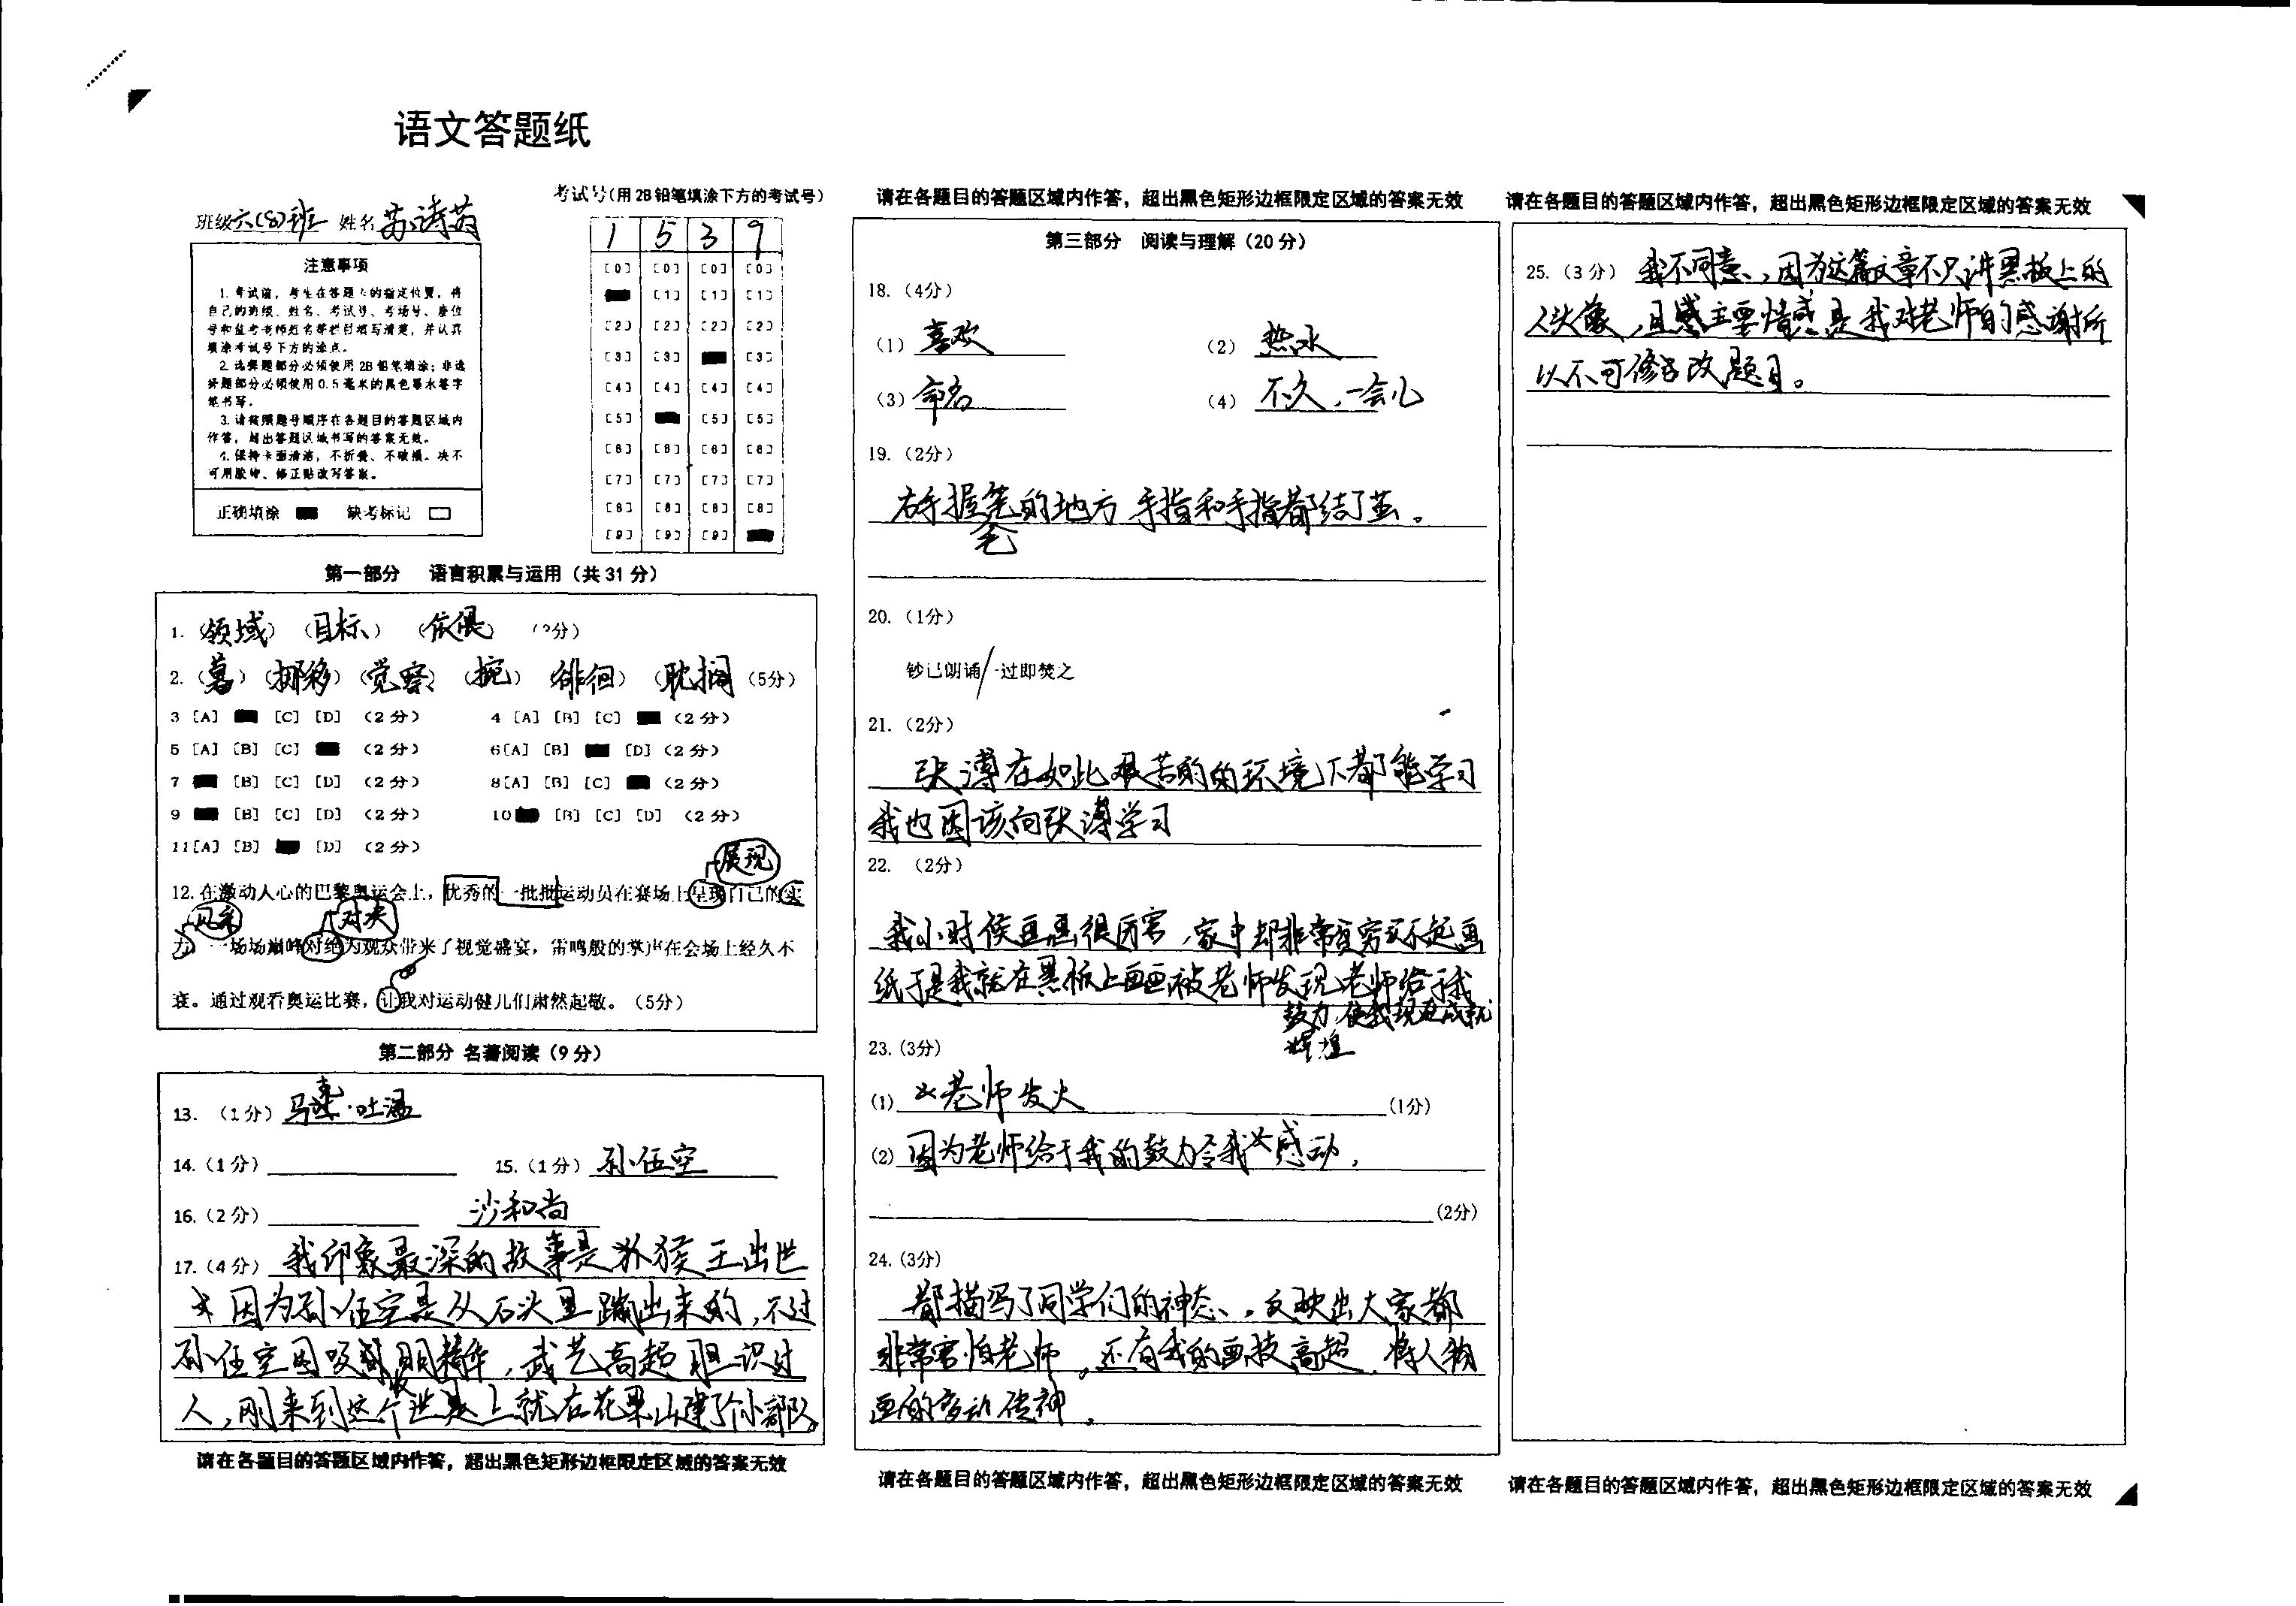 语文答题纸
班级 六(8)班 姓名 苏诗茵
考试号(用2B铅笔填涂下方的考试号)
1 5 3 9
[0] [0] [0] [0]
[1] [1] [1]
[2] [2] [2] [2]
[3] [3] [3]
[4] [4] [4] [4]
[5] [5] [5]
[6] [6] [6] [6]
[7] [7] [7] [7]
[8] [8] [8] [8]
[9] [9] [9]
注意事项
1. 考试前，考生在答题卡的指定位置，将
自己的班级、姓名、考试号、考场号、座位
号和监考老师姓名等栏目填写清楚，并认真
填涂考试号下方的涂点。
2. 选择题部分必须使用2B铅笔填涂；非选
择题部分必须使用0.5毫米的黑色墨水签字
笔书写。
3. 请按照题号顺序在各题目的答题区域内
作答，超出答题区域书写的答案无效。
4. 保持卡面清洁，不折叠、不破损。决不
可用胶带、修正贴改写答案。
正确填涂 缺考标记
第一部分 语言积累与运用（共31分）
1.（领域）（目标）（依偎）（3分）
2.（暮）（挪移）（觉察）（掩）（徘徊）（耽搁）（5分）
3 [A] [C] [D] （2分） 4 [A] [B] [C] （2分）
5 [A] [B] [C] （2分） 6 [A] [B] [D] （2分）
7 [B] [C] [D] （2分） 8 [A] [B] [C] （2分）
9 [B] [C] [D] （2分） 10 [B] [C] [D] （2分）
11 [A] [B] [D] （2分）
展现
12. 在激动人心的巴黎奥运会上，优秀的一批批运动员在赛场上呈现自己的实
风采 对决
力。一场场巅峰对绝为观众带来了视觉盛宴，雷鸣般的掌声在会场上经久不
衰。通过观看奥运比赛，让我对运动健儿们肃然起敬。（5分）
第二部分 名著阅读（9分）
13.（1分）马克·吐温
14.（1分） 15.（1分）孙伍空
16.（2分） 沙和尚
17.（4分）我印象最深的故事是猴王出世
因为孙伍空是从石头里蹦出来的，不过
孙伍空因吸收日月精华，武艺高超胆识过
人，刚来到这个世界上就在花果山建了个小部队。
请在各题目的答题区域内作答，超出黑色矩形边框限定区域的答案无效
请在各题目的答题区域内作答，超出黑色矩形边框限定区域的答案无效
第三部分 阅读与理解（20分）
18.（4分）
（1）喜欢 （2）热水
（3）命名 （4）不久，一会儿
19.（2分）
右手握笔的地方 手指和手指都结了茧。
20.（1分）
钞已朗诵/一过即焚之
21.（2分）
张溥在如此艰苦的的环境下都能学习
我也因该向张溥学习
22.（2分）
我小时候画画很厉害，家中却非常贫穷买不起画
纸于是我就在黑板上画画被老师发现老师给于我
鼓力，使我现在成就
辉煌
23.（3分）
（1）老师发火（1分）
（2）因为老师给于我的鼓力令我感动，
（2分）
24.（3分）
都描写了同学们的神态，反映出大家都
非常害怕老师，还有我的画技高超，将人物
画的生动传神。
请在各题目的答题区域内作答，超出黑色矩形边框限定区域的答案无效
请在各题目的答题区域内作答，超出黑色矩形边框限定区域的答案无效
25.（3分）我不同意，因为这篇文章不只讲黑板上的
人头像，且主要情感是我对老师的感谢所
以不可修改题目。
请在各题目的答题区域内作答，超出黑色矩形边框限定区域的答案无效